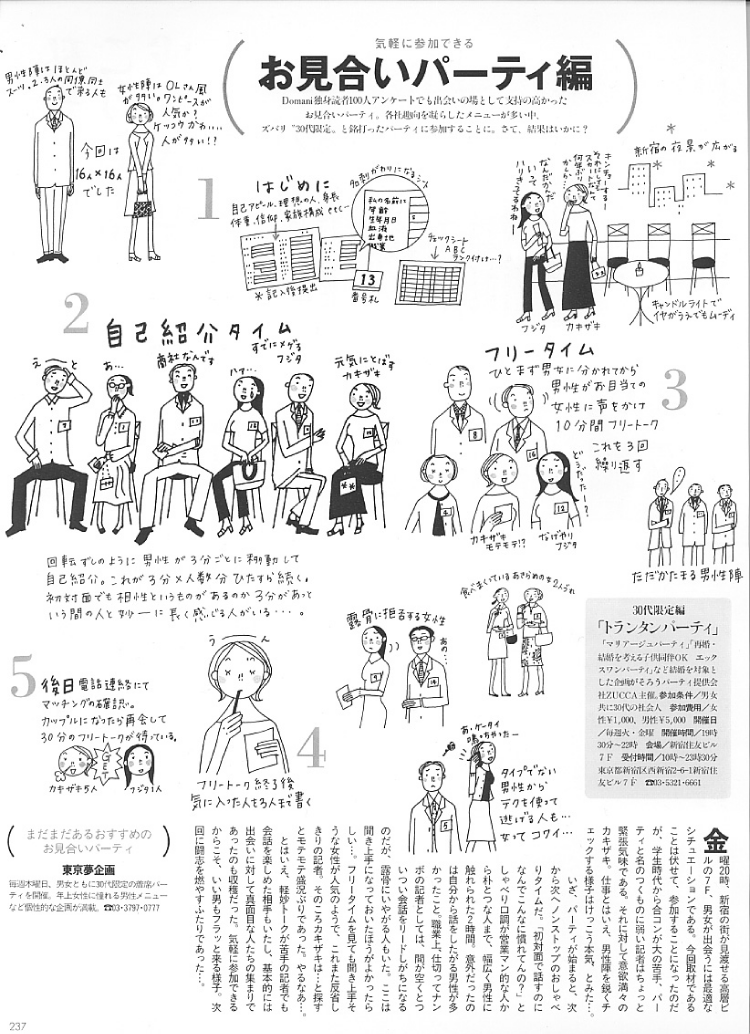 気軽に参加できる
お見合いパーティ編
Domani独身読者100人アンケートでも出会いの場として支持の高かった
お見合いパーティ。各社趣向を凝らしたメニューが多い中、
ズバリ“30代限定。と銘打ったパーティに参加することに。さて、結果はいかに?
男性陣はほとんど
スーツ。2・3人の同僚同士
で来る人も
女性陣はOLさん風
が多い。ワンピースが
人気か?
ケッコウかわいい
人が多い!!
今回は
16人×16人
でした
1
はじめに
自己アピール、理想の人、身長
体重、信仰、家族構成 etc…
私の名前は
年齢
生年月日
血液
出身地
職業
※記入後提出
13
番号札
チェックシート
ABC
ランク付け…?
なんだかんだ
いって
ハリきってるわね
フジタ
カキザキ
新宿の夜景が広がる
キャンドルライトで
イヤがうえでもムーディ
2
自己紹介タイム
えーと
あ…
商社なんです
すでにメゲる
フジタ
ハァ…
元気にとばす
カキザキ
回転ずしのように男性が3分ごとに移動して
自己紹介。これが3分×人数分ひたすら続く。
初対面でも相性というものがあるのか3分があっと
いう間の人と妙に長く感じる人がいる…。
3
フリータイム
ひとまず男女に分かれてから
男性がお目当ての
女性に声をかけ
10分間フリートーク
これを3回
繰り返す
カキザキ
モテモテ!?
なげやり
フジタ
ただかたまる男性陣
食べまくっているあきらめの女2人づれ
露骨に拒否する女性
あの…
4
うーん
フリートーク終了後
気に入った人を3人まで書く
あ、ケータイ
鳴っちゃったー
タイプでない
男性から
テクを使って
逃げる人も…
女ってコワイ…
5
後日電話連絡にて
マッチングの確認。
カップルになったら再会して
30分のフリートークが待っている。
GET
カキザキ5人
フジタ1人
30代限定編
「トランタンパーティ」
「マリアージュパーティ」「再婚・
結婚を考える子供同伴OK エック
スワンパーティ」など結婚を対象と
した企画がそろうパーティ提供会
社ZUCCA主催。参加条件/男女
共に30代の社会人 参加費用/女
性¥1,000、男性¥5,000 開催日
/毎週火・金曜 開催時間/19時
30分〜22時 会場/新宿住友ビル
7F 受付時間/10時〜23時30分
東京都新宿区西新宿2-6-1新宿住
友ビル7F ☎03・5321・6661
金曜20時、新宿の街が見渡せる高層ビ
ルの7F。男女が出会うには最適な
シチュエーションである。今回取材である
ことは伏せて、参加することになったのだ
が、学生時代から合コンが大の苦手、パー
ティと名のつくものに弱い記者はちょっと
緊張気味である。それに対して意欲満々の
カキザキ。仕事とはいえ、男性陣を鋭くチ
ェックする様子はけっこう本気、とみた…。
いざ、パーティが始まると、次
から次へノンストップのおしゃべ
りタイムだ。「初対面で話すのに
なんでこんなに慣れてんの?」と
しゃべり口調が営業マン的な人か
ら朴とつな人まで、幅広く男性に
触れられた2時間。意外だったの
は自分から話をしたがる男性が多
かったこと。職業上、仕切ってナン
ボの記者としては、間が空くとつ
いつい会話をリードしがちになる
のだが、露骨にいやがる人もいた。ここは
聞き上手になっておいたほうがよかったら
しい…。フリータイムを見ても聞き上手そ
うな女性が人気のようで、これまた反省し
きりの記者。そのころカキザキは…と探す
とモテモテ盛況ぶりであった。やるなあ…。
とはいえ、軽妙トークが苦手の記者でも
会話を楽しめた相手もいたし、基本的には
出会いに対して真面目な人たちの集まりで
あったのも収穫だった。気軽に参加できる
からこそ、いい男もフラッと来る様子。次
回に闘志を燃やすふたりであった…。
まだまだあるおすすめの
お見合いパーティ
東京夢企画
毎週木曜日、男女ともに30代限定の着席パー
ティを開催。年上女性に憧れる男性メニュー
など個性的な企画が満載。☎03・3797・0777
237